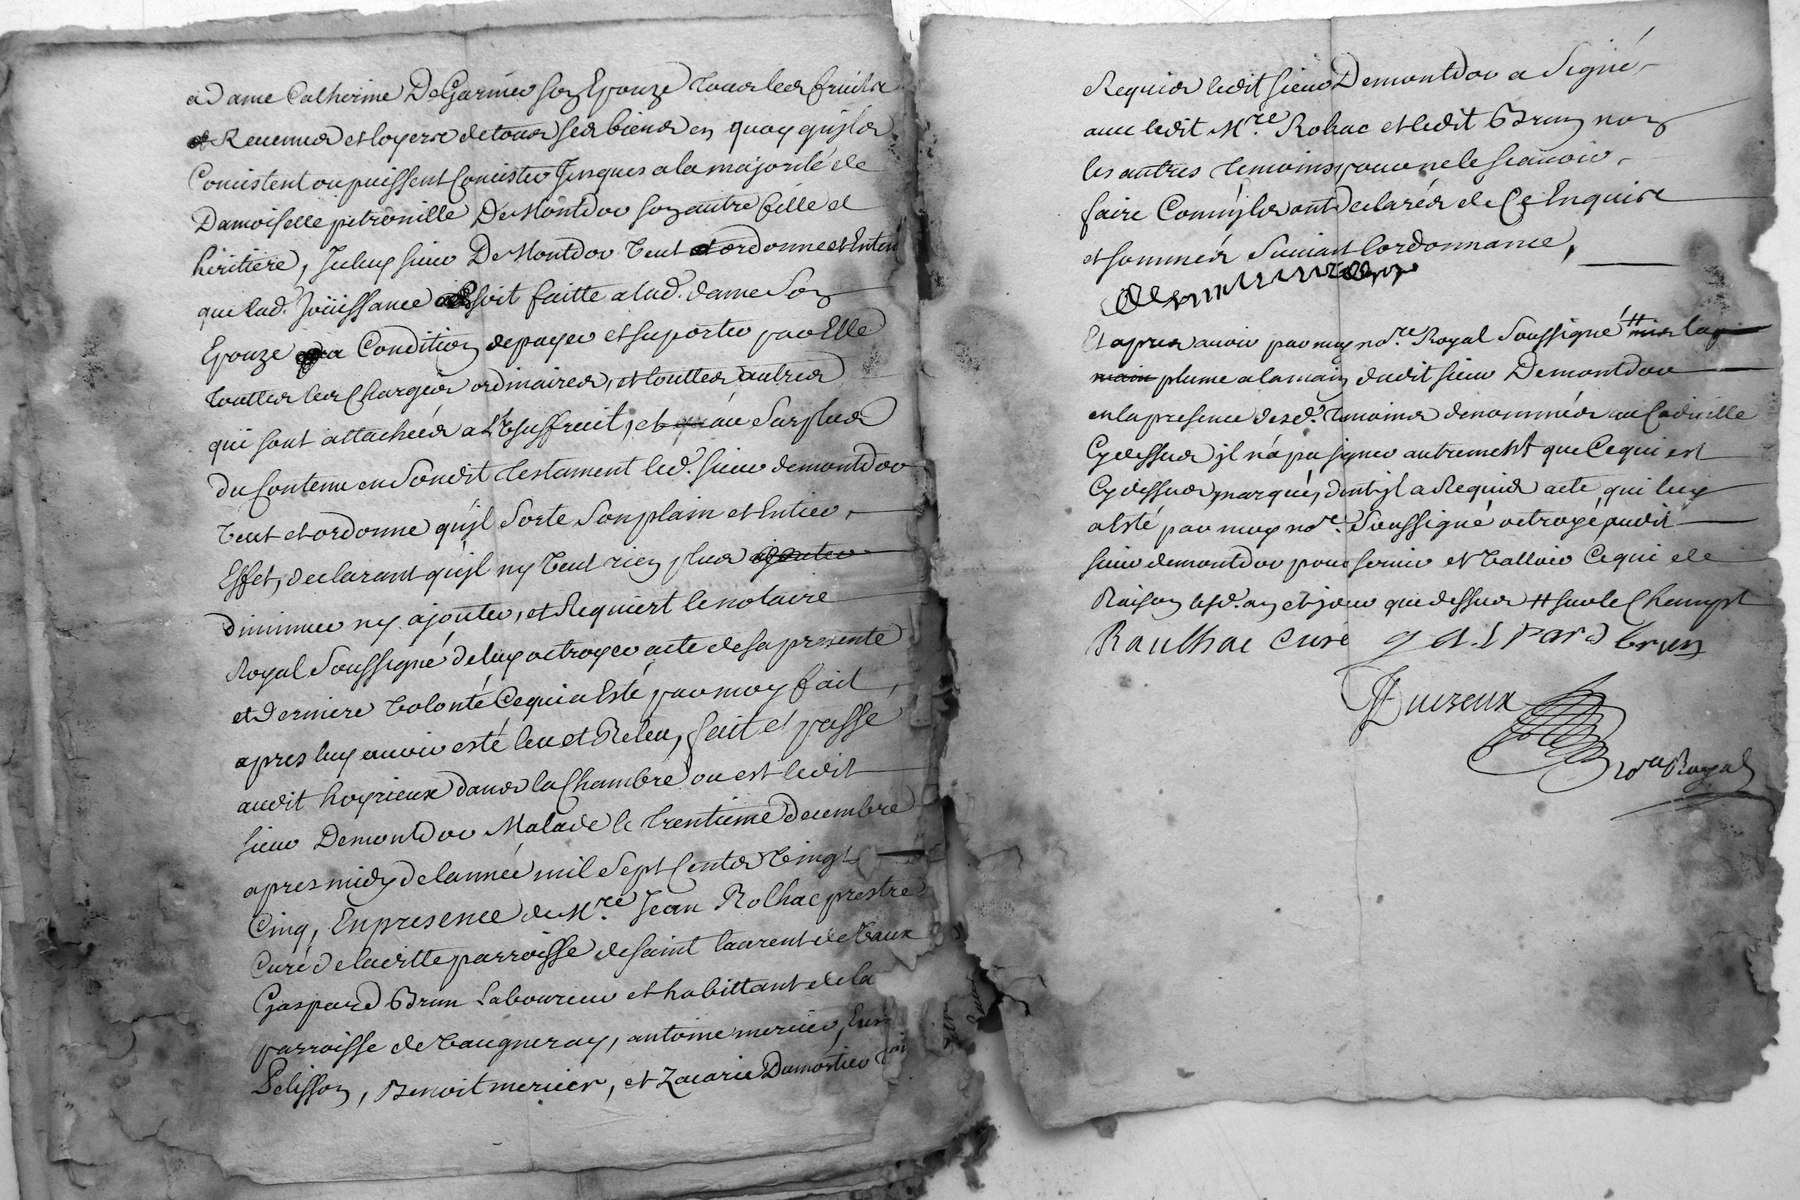 a Dame Catherine DeGarnier son Epouze Tous les fruits
et Revenus et loyers de tous ses biens en quoy qu'jls
Concistent ou puissent Concister Jusques a la majorité de
Damoiselle petronille DeMontdor son autre fille et
héritiere, Jceluy sieur DeMontdor Veut et ordonne et Enten
que lad. Joüissance soit faitte a lad. dame Son
Epouze a Condition de payer et suporter par Elle
touttes les Charges ordinaires, et touttes autres
qui sont attachées a L'Usuffruit, et au Surplus
du Contenu en Sondit Testament led. sieur demontdor
Veut et ordonne qu'jl Sorte Son plain et Entier
Effet, declarant qu'jl ny Veut rien plus ajouter
diminuer ny ajouter, et Requiert le notaire
Royal Soussigné de luy octroyer acte de sa presente
et derniere Volonté Ce qui a Esté par moy fait,
apres luy avoir esté leu et Releu, fait et passé
audit hoyrieux dans la Chambre ou est ledit
sieur Demontdor Malade le trentieme decembre
apres midy de lannée mil Sept Cents Vingt
Cinq, En presence de Mre. Jean Rolhac prestre
Curé de laditte parroisse de saint laurent de Vaux
Gaspard Brun Laboureur et habittant de la
parroisse de Vaugneray, antoine mercier,
Pelisson, Benoit mercier, et Zacarie Dumortier
Requis ledit sieur Demontdor a Signé
avec ledit Mre. Rolhac et ledit Brun non
les autres temoins pour ne le scauoir
faire Comm'jls ont declarés de Ce Enquis
et sommés Suivant l'ordonnance,
Et apres avoir par moy nore. Royal Soussigné # mis la
main plume a la main dudit sieur Demontdor
en la presence desd. temoins denommés au Codicille
Cy dessus jl n'a pu signer autrement que Ce qui est
Cy dessus marqué, dont jl a Requis acte, qui luy
a Esté par moy nore. Soussigné octroyé audit
sieur demontdor pour servir et Valloir Ce qui de
Raison lesd. an et jour que dessus # sur le Champt
Raulhac Curé gaspard brun
Duireux
nore Royal